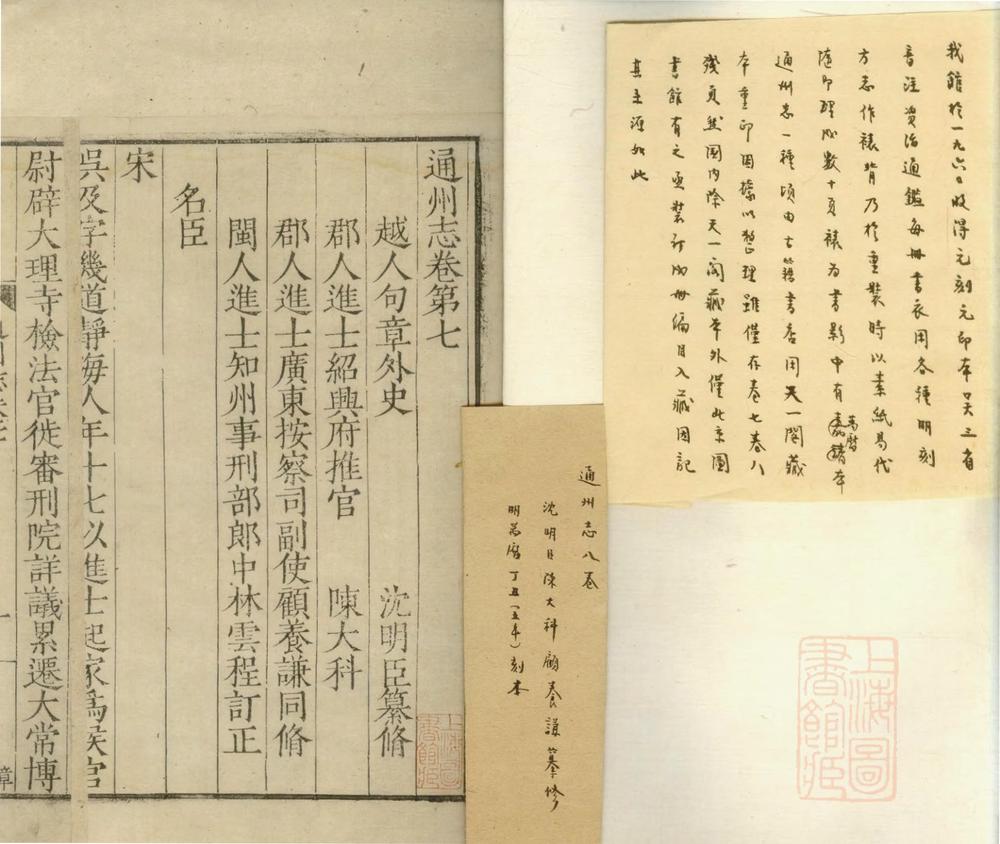 我館於一九六〇收得元刻元印本胡三省
音注資治通鑑每冊書衣用各種明刻
方志作裱背乃於重裝時以素紙易代
隨即理出數十頁裱為書影中有萬曆(嘉靖)本
通州志一種頃由古籍書店用天一閣藏
本重印因據以整理雖僅存卷七卷八
殘頁然國內除天一閣藏本外僅北京圖
書館有之亟裝訂成冊編目入藏因記
其來源如此
通州志八卷
沈明臣陳大科顧養謙纂修
明萬曆丁丑(五年)刻本
通州志卷第七
越人句章外史 沈明臣纂脩
郡人進士紹興府推官 陳大科
郡人進士廣東按察司副使顧養謙同脩
閩人進士知州事刑部郎中林雲程訂正
名臣
宋
吳及字幾道靜海人年十七以進士起家為候官
尉辟大理寺檢法官徙審刑院詳議累遷大常博
章
上海圖書館藏
上海圖書館藏